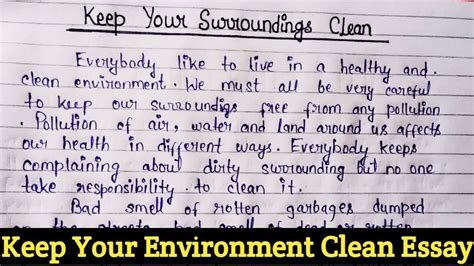 Keep Your Surroundings Clean
Everybody like to live in a healthy and
clean environment. We must all be very careful
to keep our surroundigs free from any pollution
. Pollution of air, water and land around us affects
our health in different ways. Everybody keeps
complaining about dirty surrounding but no one
take responsibility to clean it.
Bad smell of rotten garbages dumped
on the streets, bad smell of dead or rotten
Keep Your Environment Clean Essay